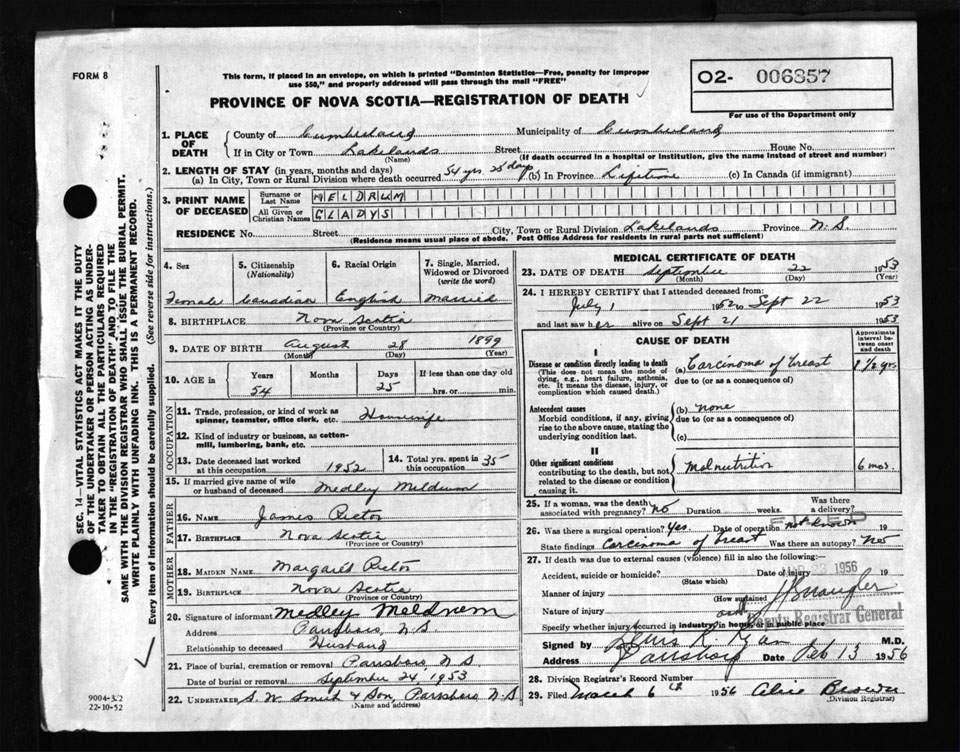 FORM 8
This form, if placed in an envelope, on which is printed "Dominion Statistics—Free, penalty for improper
use $50," and properly addressed will pass through the mail "FREE"
O2- 006857
For use of the Department only
PROVINCE OF NOVA SCOTIA—REGISTRATION OF DEATH
1. PLACE OF DEATH { County of Cumberland Municipality of Cumberland
If in City or Town Lakelands Street House No.
(Name) (If death occurred in a hospital or institution, give the name instead of street and number)
2. LENGTH OF STAY (in years, months and days)
(a) In City, Town or Rural Division where death occurred 54 yrs. 25 days (b) In Province Lifetime (c) In Canada (if immigrant)
3. PRINT NAME OF DECEASED { Surname or Last Name MELDRUM
All Given or Christian Names GLADYS
RESIDENCE No. Street City, Town or Rural Division Lakelands Province N.S.
(Residence means usual place of abode. Post Office Address for residents in rural parts not sufficient)
4. Sex Female
5. Citizenship (Nationality) Canadian
6. Racial Origin English
7. Single, Married, Widowed or Divorced (write the word) Married
8. BIRTHPLACE Nova Scotia
(Province or Country)
9. DATE OF BIRTH August 28 1899
(Month) (Day) (Year)
10. AGE in { Years 54 Months Days 25 If less than one day old hrs. or min.
OCCUPATION
11. Trade, profession, or kind of work as spinner, teamster, office clerk, etc. Housewife
12. Kind of industry or business, as cotton-mill, lumbering, bank, etc.
13. Date deceased last worked at this occupation 1952
14. Total yrs. spent in this occupation 35
15. If married give name of wife or husband of deceased Medley Meldrum
FATHER
16. NAME James Rector
17. BIRTHPLACE Nova Scotia
(Province or Country)
MOTHER
18. MAIDEN NAME Margaret Rector
19. BIRTHPLACE Nova Scotia
(Province or Country)
20. Signature of informant Medley Meldrum
Address Parrsboro, N.S.
Relationship to deceased Husband
21. Place of burial, cremation or removal Parrsboro, N.S.
Date of burial or removal September 24, 1953
22. UNDERTAKER S. W. Smith & Son Parrsboro N.S.
(NAME AND ADDRESS)
MEDICAL CERTIFICATE OF DEATH
23. DATE OF DEATH September 22 1953
(Month) (Day) (Year)
24. I HEREBY CERTIFY that I attended deceased from:
July 1 1952 to Sept 22 1953
and last saw her alive on Sept 21 1953
CAUSE OF DEATH
Approximate interval between onset and death
I
Disease or condition directly leading to death
(This does not mean the mode of dying, e.g., heart failure, asthenia, etc. It means the disease, injury, or complication which caused death.)
(a) Carcinoma of breast 1½ yrs
due to (or as a consequence of)
Antecedent causes
Morbid conditions, if any, giving rise to the above cause, stating the underlying condition last.
(b) none
due to (or as a consequence of)
(c)
II
Other significant conditions
contributing to the death, but not related to the disease or condition causing it.
Malnutrition 6 mos.
25. If a woman, was the death associated with pregnancy? No Duration weeks. Was there a delivery?
26. Was there a surgical operation? Yes. Date of operation not known 19
State findings Carcinoma of breast Was there an autopsy? No
27. If death was due to external causes (violence) fill in also the following:
Accident, suicide or homicide? Date of injury 19
(State which)
Manner of injury
(How sustained)
Nature of injury
Specify whether injury occurred in industry, in home, or in public place
FILED
23 1956
Deputy Registrar General
Signed by M.D.
Address Parrsboro Date Feb 13 1956
28. Division Registrar's Record Number
29. Filed March 6th 1956 Alice Brown
(Division Registrar)
SEC. 14—VITAL STATISTICS ACT MAKES IT THE DUTY
OF THE UNDERTAKER OR PERSON ACTING AS UNDER-
TAKER TO OBTAIN ALL THE PARTICULARS REQUIRED
IN THE "REGISTRATION OF DEATH" AND TO FILE THE
SAME WITH THE DIVISION REGISTRAR WHO SHALL ISSUE THE BURIAL PERMIT.
WRITE PLAINLY WITH UNFADING INK. THIS IS A PERMANENT RECORD.
Every item of information should be carefully supplied. (See reverse side for instructions.)
9004-3/2
22-10-52